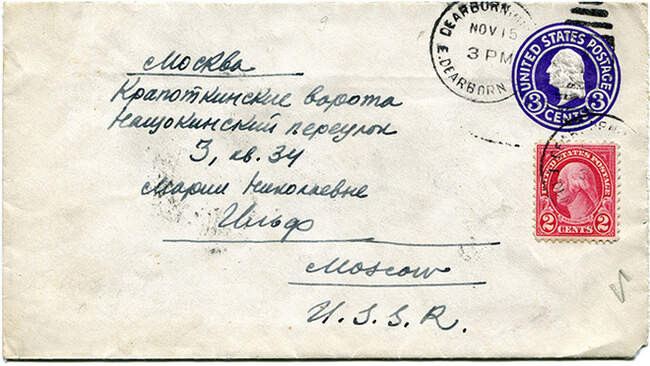 DEARBORN
NOV 15
3 PM
E. DEARBORN
UNITED STATES POSTAGE
3 CENTS 3
Москва
Крапоткинские ворота
Нащокинский переулок
5, кв. 34
Марии Николаевне
Ильф
Moscow
U.S.S.R.
UNITED STATES POSTAGE
2 CENTS 2